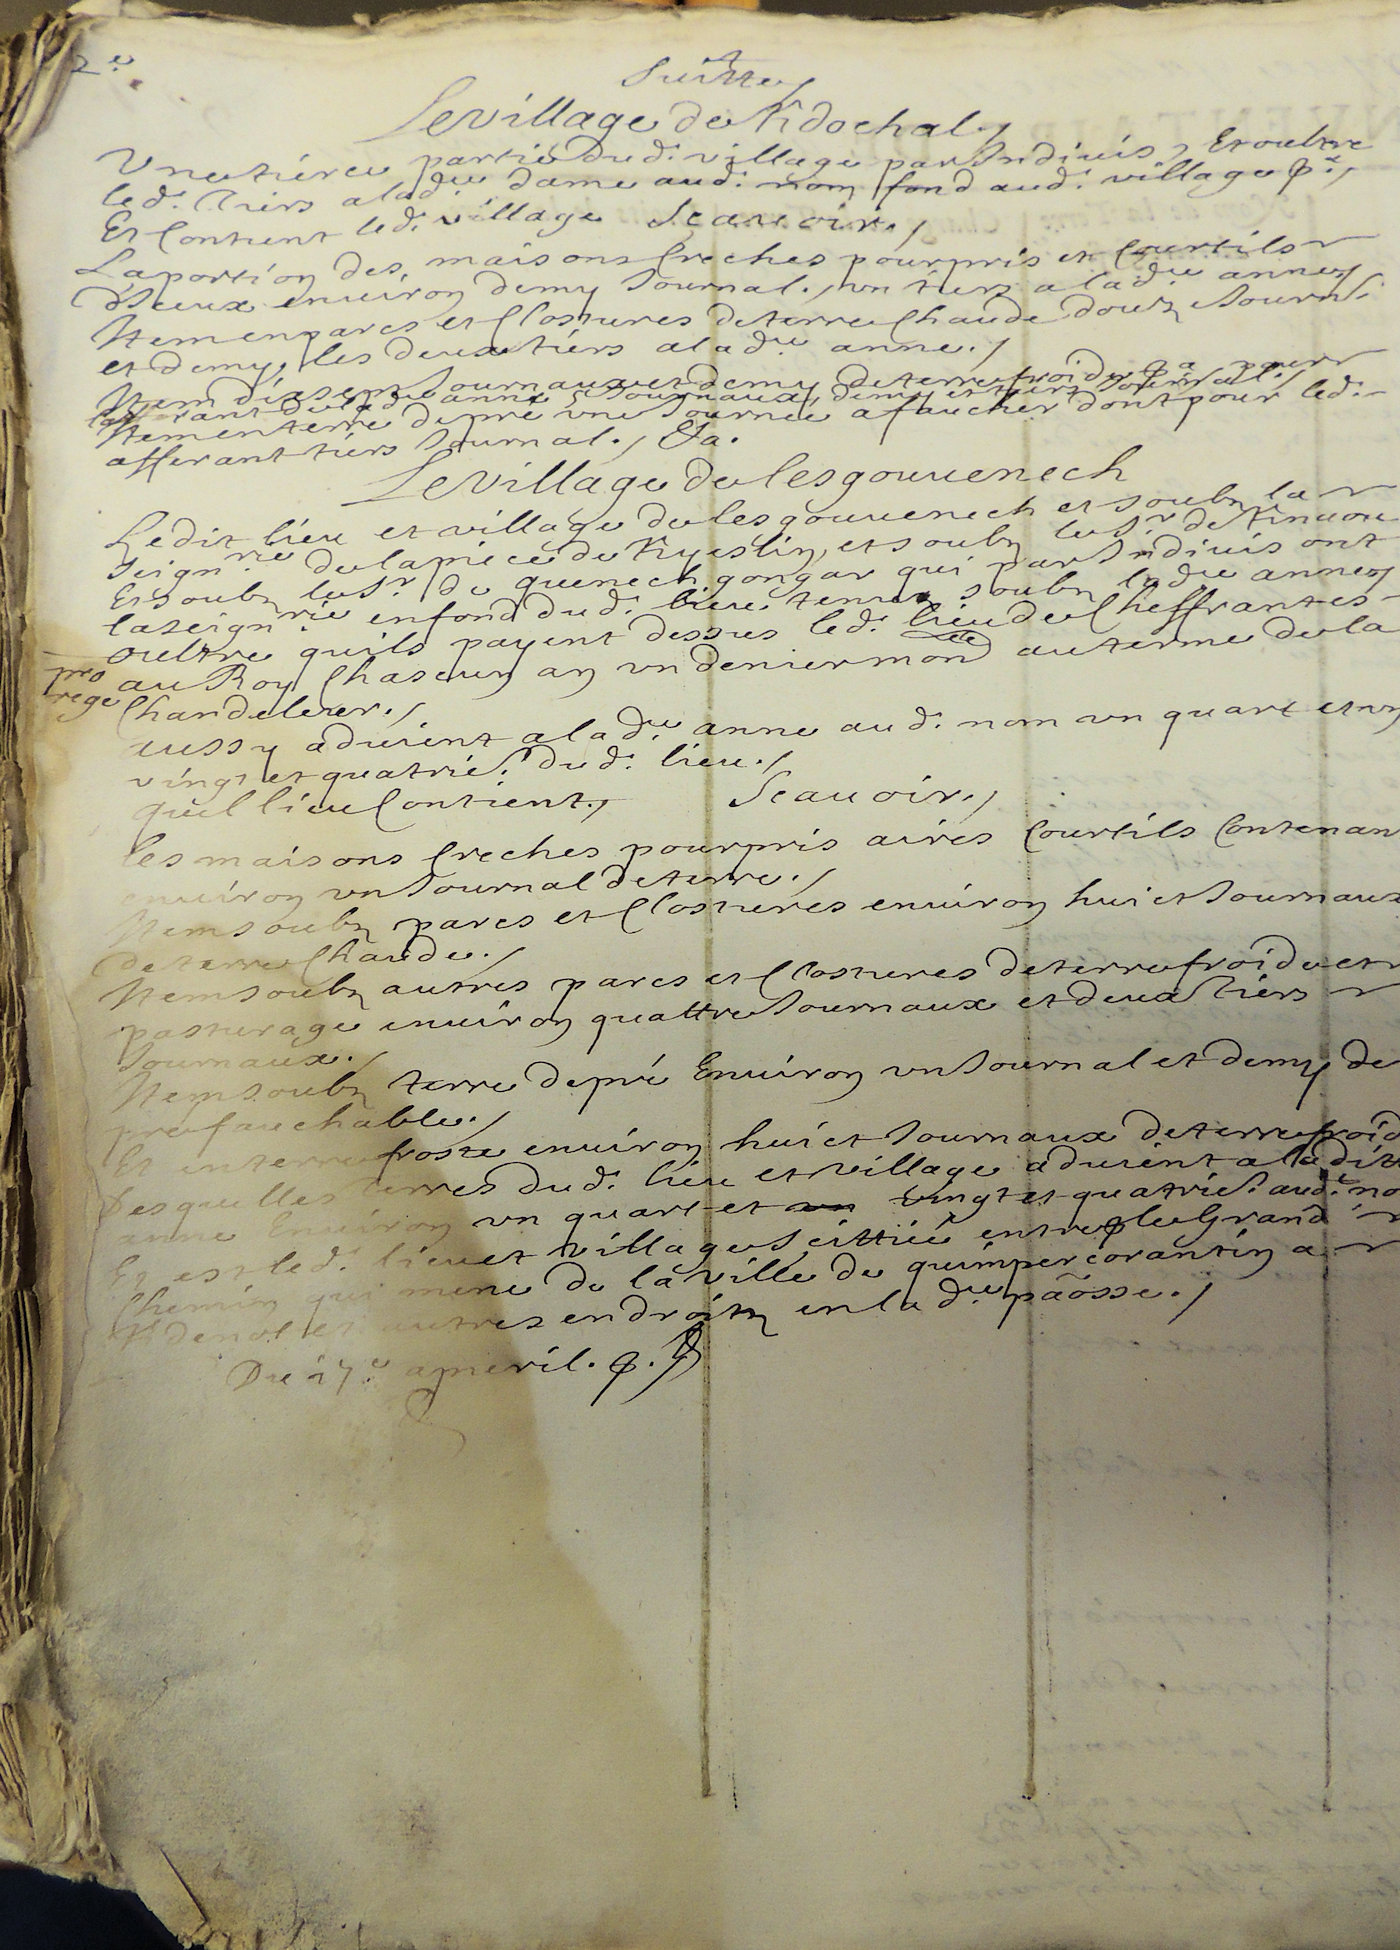 2e.
Suitte
Le village de K/dochal
Vne tierce partie dud. village par Indiuis, Et oultre
led. tiers a lad.e dame aud. nom fond aud. village
Et Contient led. village Scauoir./
La portion des maisons Creches pourpris et Courtils
d'Iceux enuiron demy Iournal., vn tiers a lad.e anne
Item en parcs et Clostures de terre Chaude douze Iourn.
et demy, les deux tiers a lad.e anne./
Item dix sept Iournaux et demy de terre froide pour
lad.e anne 5 Iournaux, demy et tiers Iournal./
Item en terre de pré vne Iournée a faucher dont pour led.
afferant tiers Iournal./ &a.
Le Village de lesgouuenech
Ledit lieu et village de lesgouuenech et soubz la
seign.rie de la piece de K/yeslin, et soubz le S.r de
Et soubz le S.r de quenech gongar qui par Indiuis ont
la seign.rie en fond dud. lieu tenu soubz lad.e anne
oultre quils payent dessus led. lieu de Cheffrantes
au Roy Chascun an vn denier monn.e au terme de la
pro rege
Chandeleur./
aussy aduient a lad.e anne aud. nom vn quart et vn
vingt et quatrie. dud. lieu./
quel lieu Contient, Scauoir./
les maisons Creches pourpris aires Courtils Contenan
enuiron vn Iournal de terre./
Item soubz parcs et Clostures enuiron huict Iournaux
de terre Chaude./
Item soubz autres parcs et Clostures de terre froide et
pasturage enuiron quattre Iournaux et deux tiers
Iournaux./
Item soubz terre de pré Enuiron vn Iournal et demy de
pré fauchable./
Et en terre froste enuiron huict Iournaux de terre froid
Desquelles terres dud. lieu et village aduient a ladit
anne Enuiron vn quart et vn vingt et quatrie. aud. no
Et est led. lieu et village Scittué entre le Grand
Chemin qui mene de la ville de quimpercorantin a
K/denot et autres endroitz en lad.e pãosse./
Du 17e. apueril.